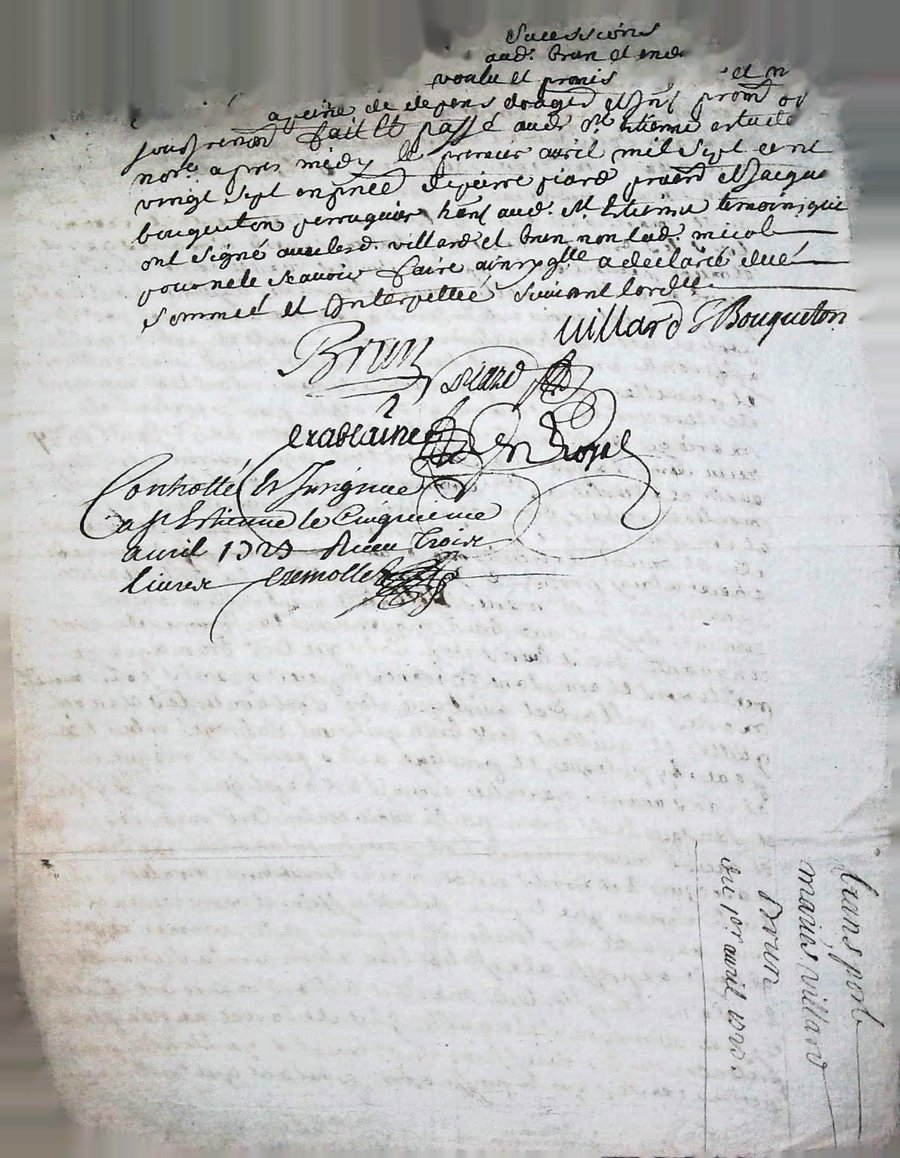 sucessions
aud. brun et
voulu et promis et
a peine de depens domges et
soubs renon fait et passé aud. St Etienne estude
nore. apres midy le premier avril mil sept cent
vingt sept en pnce de pierre piard et Jacque
bouqueton perruquier aud. St Etienne temoins qui
ont signé avec les d. villard et brun non lad. micol
pour ne le scavoir faire ainsy qlle a declaré
sommeé et Interpelleé suivant lordce.
Villard J Bouqueton
Brun
piard
Royal
Controllé et Insignué
a St Estienne le Cinquieme
avril 1727 Receu Trois
livres
transport
mariés villard
Brun
du per. avril 1727.